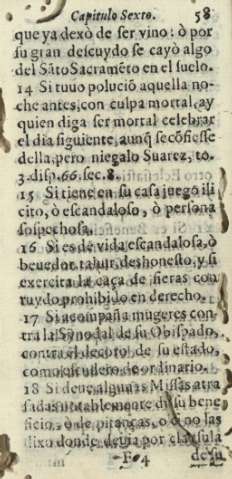 Capitulo Sexto. 58
que ya dexò de ser vino: ò por
su gran descuydo se cayò algo
del Sãto Sacramẽto en el suelo.
14 Si tuuo poluciõ aquella no-
che antes, con culpa mortal, ay
quien diga ser mortal celebrar
el dia siguiente, aunq̃ se cõfiesse
della, pero niegalo Suarez, to.
3. disp. 66. sec. 8.
15 Si tiene en su casa juego ili
cito, ò escandaloso, ò persona
sospechosa.
16 Si es de vida escandalosa, ò
beuedor, tahur, deshonesto, y si
exercita la caça de fieras con
ruydo prohibido en derecho.
17 Si acompaña mugeres con-
tra la Synodal de su Obispado,
contra el decoro de su estado,
como escudero de ordinario.
18 Si deue algunas Missas atra
sadas notablemente di su bene
ficio, ò de pitanças, o ò no las
dixo donde deuia por clausula
F 4 de su